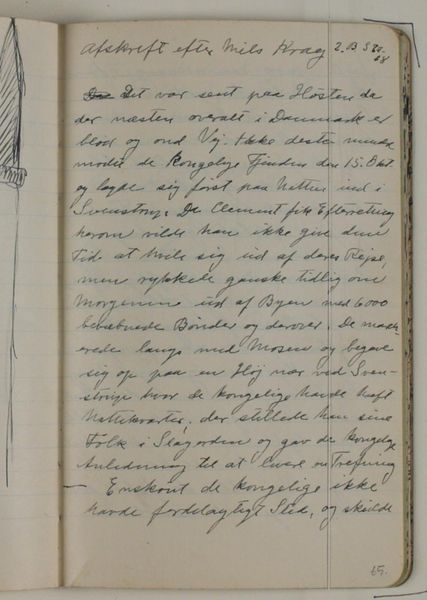 Afskrift efter Niels Krag 2. B S 20.
Det var sent paa Høsten da
der næsten overalt i Danmark er
blød og ond Vej. Ikke desto mindre
mødte de kongelige Fjenden den 15. Okt
og lagde sig først paa Natten ind i
Svenstrup. Da Clement fik Efterretning
herom vilde han ikke give dem
Tid at hvile sig ud af deres Rejse,
men rykkede ganske tidlig om
Morgenen ud af Byen med 6000
bevæbnede Bønder og derover. De mach-
erede langs med Mosen og begave
sig op paa en Høj nær ved Sven-
strup hvor de kongelige havde haft
Nattekvarter, der stillede han sine
Folk i Slagorden og gav de kongelge
Anledning til at levere en Træfning
— Enskønt de kongelige ikke
havde fordelagtigt Sted, og skilde
65.